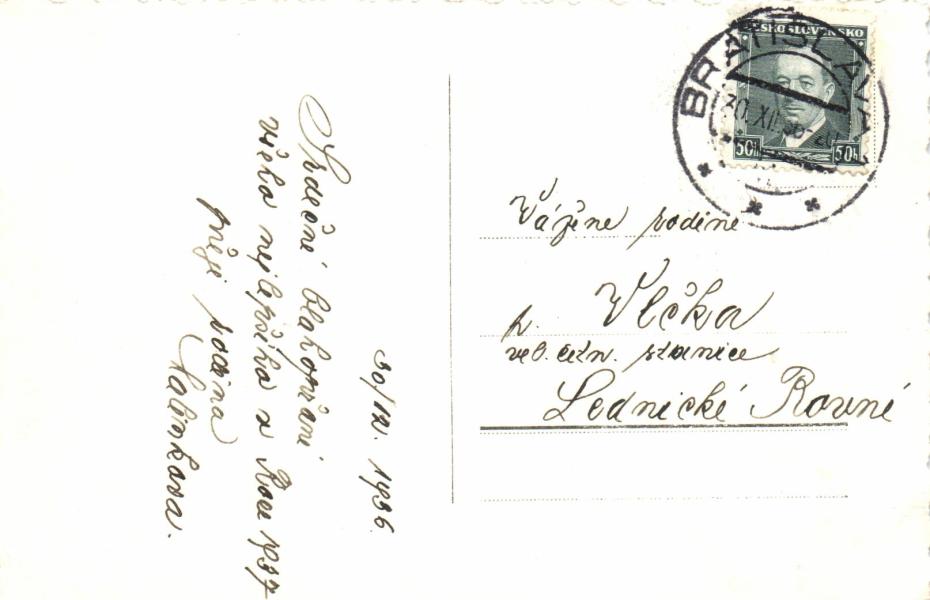 ČESKOSLOVENSKO
50h 50h
BRATISLAVA
30.XII.36-20
Vážené rodině
Vlčka
p.
vel. četn. stanice
Lednické Rovné
30/XII. 1936
Srdečné blahopřání
všeho nejlepšího v Roce 1937
přeje rodina